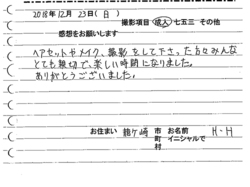 2018年12月23日(日)
撮影項目 成人 七五三 その他
感想をお願いします
ヘアセットやメイク、撮影をして下さった方々みんな
とても親切で、楽しい時間になりました。
ありがとうございました。
お住まい 龍ヶ崎 市 お名前 H・H
町 イニシャルで
村